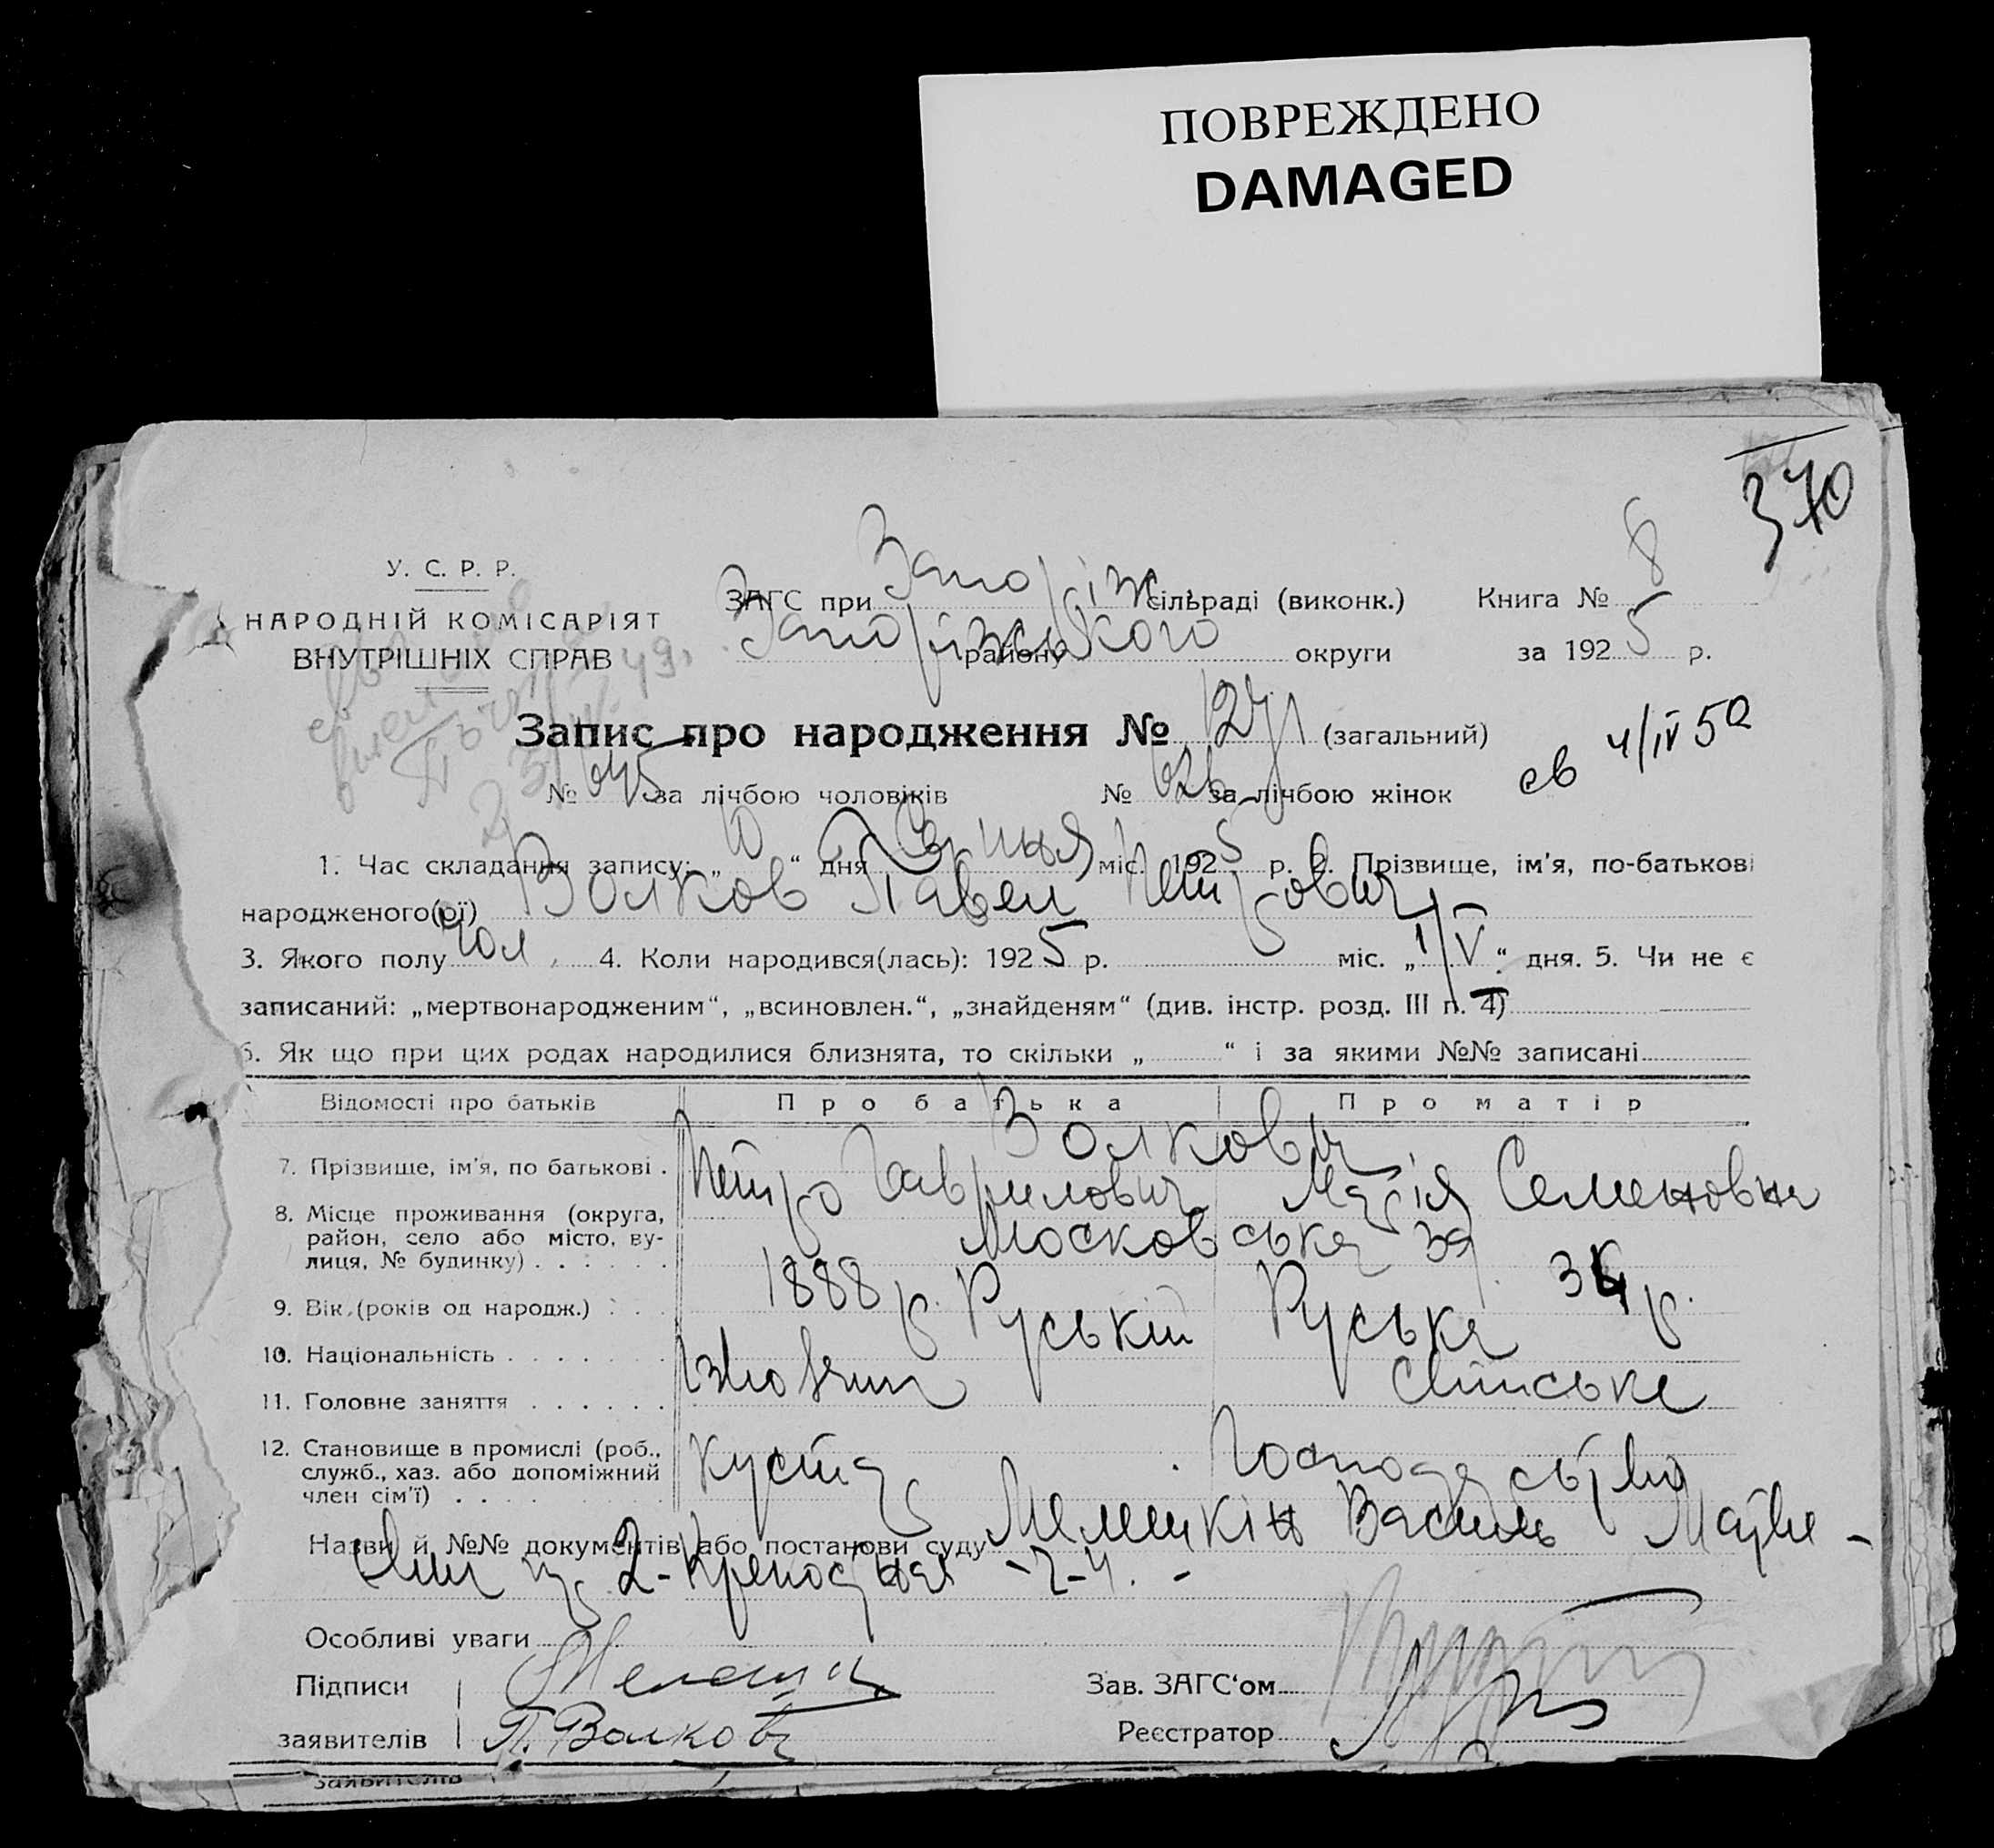 ПОВРЕЖДЕНО
DAMAGED
370
У. С. Р. Р.
НАРОДНІЙ КОМІСАРІЯТ
ВНУТРІШНІХ СПРАВ
ЗАГС при Запоріж. сільраді (виконк.) Книга № 8
Запоріжського району округи за 1925 р.
Запис про народження № (загальний)
св 4/IV 50
№ 645 за лічбою чоловіків № 626 за лічбою жінок
1. Час складання запису: „10“ дня Серпня міс. 1925 р. 2. Прізвище, ім'я, по-батькові
народженого(ої) Волков Павел Петрович
3. Якого полу чол. 4. Коли народився(лась): 1925 р. міс. „1/V“ дня. 5. Чи не є
записаний: „мертвонародженим“, „всиновлен.“, „знайденям“ (див. інстр. розд. III п. 4)
6. Як що при цих родах народилися близнята, то скільки „ “ і за якими №№ записані
Відомості про батьків Про батька Про матір
Волкови
7. Прізвище, ім'я, по батькові . Петро Гаврилович Марія Семеновна
8. Місце проживання (округа,
район, село або місто, ву-
лиця, № будинку) . . . . . . Московська 39
9. Вік (років од народж.) . . . 1888 р. 34 р.
10. Національність . . . . . . . Руський Руська
11. Головне заняття . . . . . . Хатнське
12. Становище в промислі (роб.,
служб., хаз. або допоміжний
член сім'ї) . . . . Кустар Господарство
Назви й №№ документів або постанови суду Мелешкін Василь Матве-
вич 2-Крепосная -2-4. -
Особливі уваги
Підписи Зав. ЗАГС'ом
заявителів П. Волков Реєстратор
заявителів